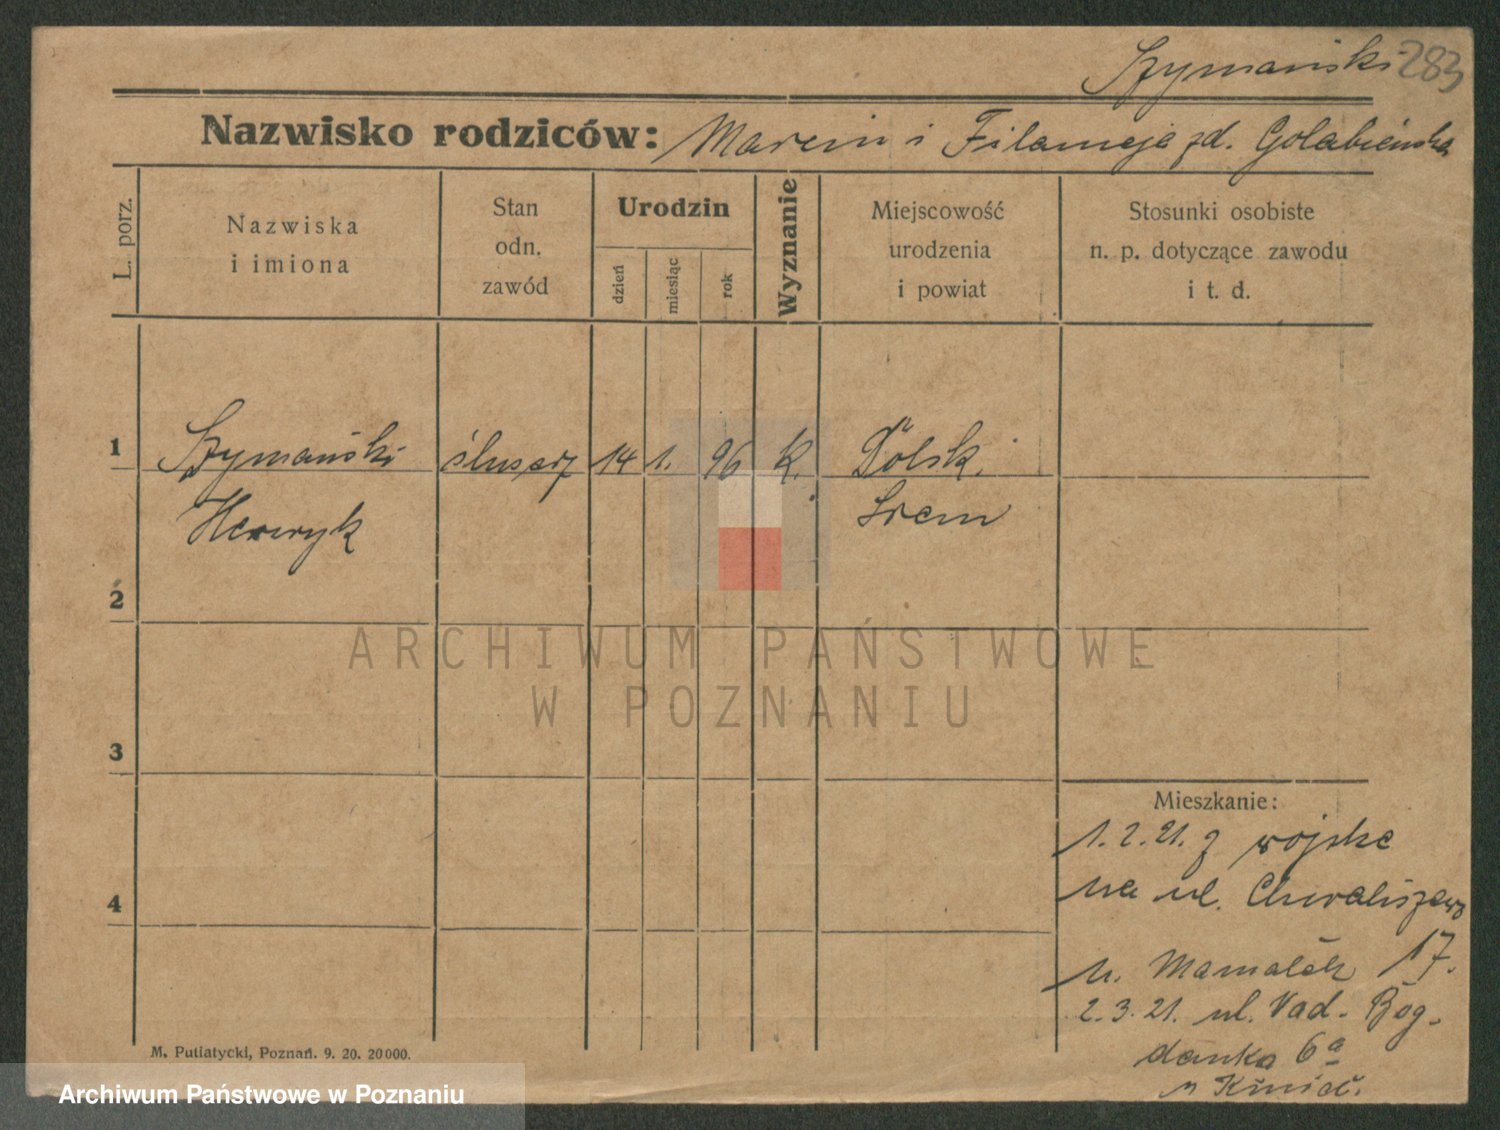 Szymański 283
Nazwisko rodziców: Marcin i Filomeja zd. Gołabieńska
L. porz.
Nazwiska
i imiona
Stan
odn.
zawód
Urodzin
dzień
miesiąc
rok
Wyznanie
Miejscowość
urodzenia
i powiat
Stosunki osobiste
n. p. dotyczące zawodu
i t. d.
1 Szymański ślusarz 14 1. 96 k. Dolsk.
Henryk Śrem
2
3
4
Mieszkanie:
1. 2. 21. z wojska
na ul. Chwaliszewo
u. 17.
2. 3. 21. ul. Nad. Bog-
danka 6a
M. Putiatycki, Poznań. 9. 20. 20000.
ARCHIWUM PAŃSTWOWE
W POZNANIU
Archiwum Państwowe w Poznaniu